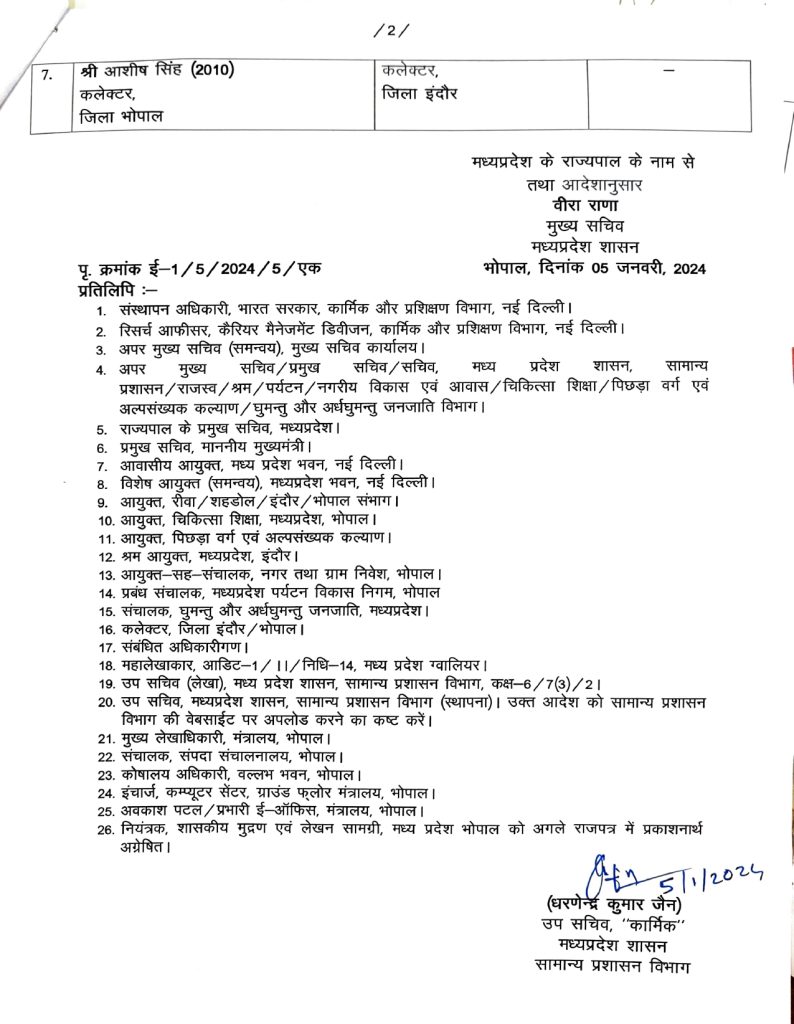 /2/
7. श्री आशीष सिंह (2010) कलेक्टर, –
कलेक्टर, जिला इंदौर
जिला भोपाल
मध्यप्रदेश के राज्यपाल के नाम से
तथा आदेशानुसार
वीरा राणा
मुख्य सचिव
मध्यप्रदेश शासन
पृ. क्रमांक ई–1/5/2024/5/एक भोपाल, दिनांक 05 जनवरी, 2024
प्रतिलिपि :–
1. संस्थापन अधिकारी, भारत सरकार, कार्मिक और प्रशिक्षण विभाग, नई दिल्ली।
2. रिसर्च आफीसर, कैरियर मैनेजमेंट डिवीजन, कार्मिक और प्रशिक्षण विभाग, नई दिल्ली।
3. अपर मुख्य सचिव (समन्वय), मुख्य सचिव कार्यालय।
4. अपर मुख्य सचिव/प्रमुख सचिव/सचिव, मध्य प्रदेश शासन, सामान्य
प्रशासन/राजस्व/श्रम/पर्यटन/नगरीय विकास एवं आवास/चिकित्सा शिक्षा/पिछड़ा वर्ग एवं
अल्पसंख्यक कल्याण/घुमन्तु और अर्धघुमन्तु जनजाति विभाग।
5. राज्यपाल के प्रमुख सचिव, मध्यप्रदेश।
6. प्रमुख सचिव, माननीय मुख्यमंत्री।
7. आवासीय आयुक्त, मध्य प्रदेश भवन, नई दिल्ली।
8. विशेष आयुक्त (समन्वय), मध्यप्रदेश भवन, नई दिल्ली।
9. आयुक्त, रीवा/शहडोल/इंदौर/भोपाल संभाग।
10. आयुक्त, चिकित्सा शिक्षा, मध्यप्रदेश, भोपाल।
11. आयुक्त, पिछड़ा वर्ग एवं अल्पसंख्यक कल्याण।
12. श्रम आयुक्त, मध्यप्रदेश, इंदौर।
13. आयुक्त–सह–संचालक, नगर तथा ग्राम निवेश, भोपाल।
14. प्रबंध संचालक, मध्यप्रदेश पर्यटन विकास निगम, भोपाल
15. संचालक, घुमन्तु और अर्धघुमन्तु जनजाति, मध्यप्रदेश।
16. कलेक्टर, जिला इंदौर/भोपाल।
17. संबंधित अधिकारीगण।
18. महालेखाकार, आडिट–1/।।/निधि–14, मध्य प्रदेश ग्वालियर।
19. उप सचिव (लेखा), मध्य प्रदेश शासन, सामान्य प्रशासन विभाग, कक्ष–6/7(3)/2।
20. उप सचिव, मध्यप्रदेश शासन, सामान्य प्रशासन विभाग (स्थापना)। उक्त आदेश को सामान्य प्रशासन
विभाग की वेबसाईट पर अपलोड करने का कष्ट करें।
21. मुख्य लेखाधिकारी, मंत्रालय, भोपाल।
22. संचालक, संपदा संचालनालय, भोपाल।
23. कोषालय अधिकारी, वल्लभ भवन, भोपाल।
24. इंचार्ज, कम्प्यूटर सेंटर, ग्राउंड फ्लोर मंत्रालय, भोपाल।
25. अवकाश पटल/प्रभारी ई–ऑफिस, मंत्रालय, भोपाल।
26. नियंत्रक, शासकीय मुद्रण एवं लेखन सामग्री, मध्य प्रदेश भोपाल को अगले राजपत्र में प्रकाशनार्थ
अग्रेषित।
5/1/2024
(धरणेन्द्र कुमार जैन)
उप सचिव, "कार्मिक"
मध्यप्रदेश शासन
सामान्य प्रशासन विभाग